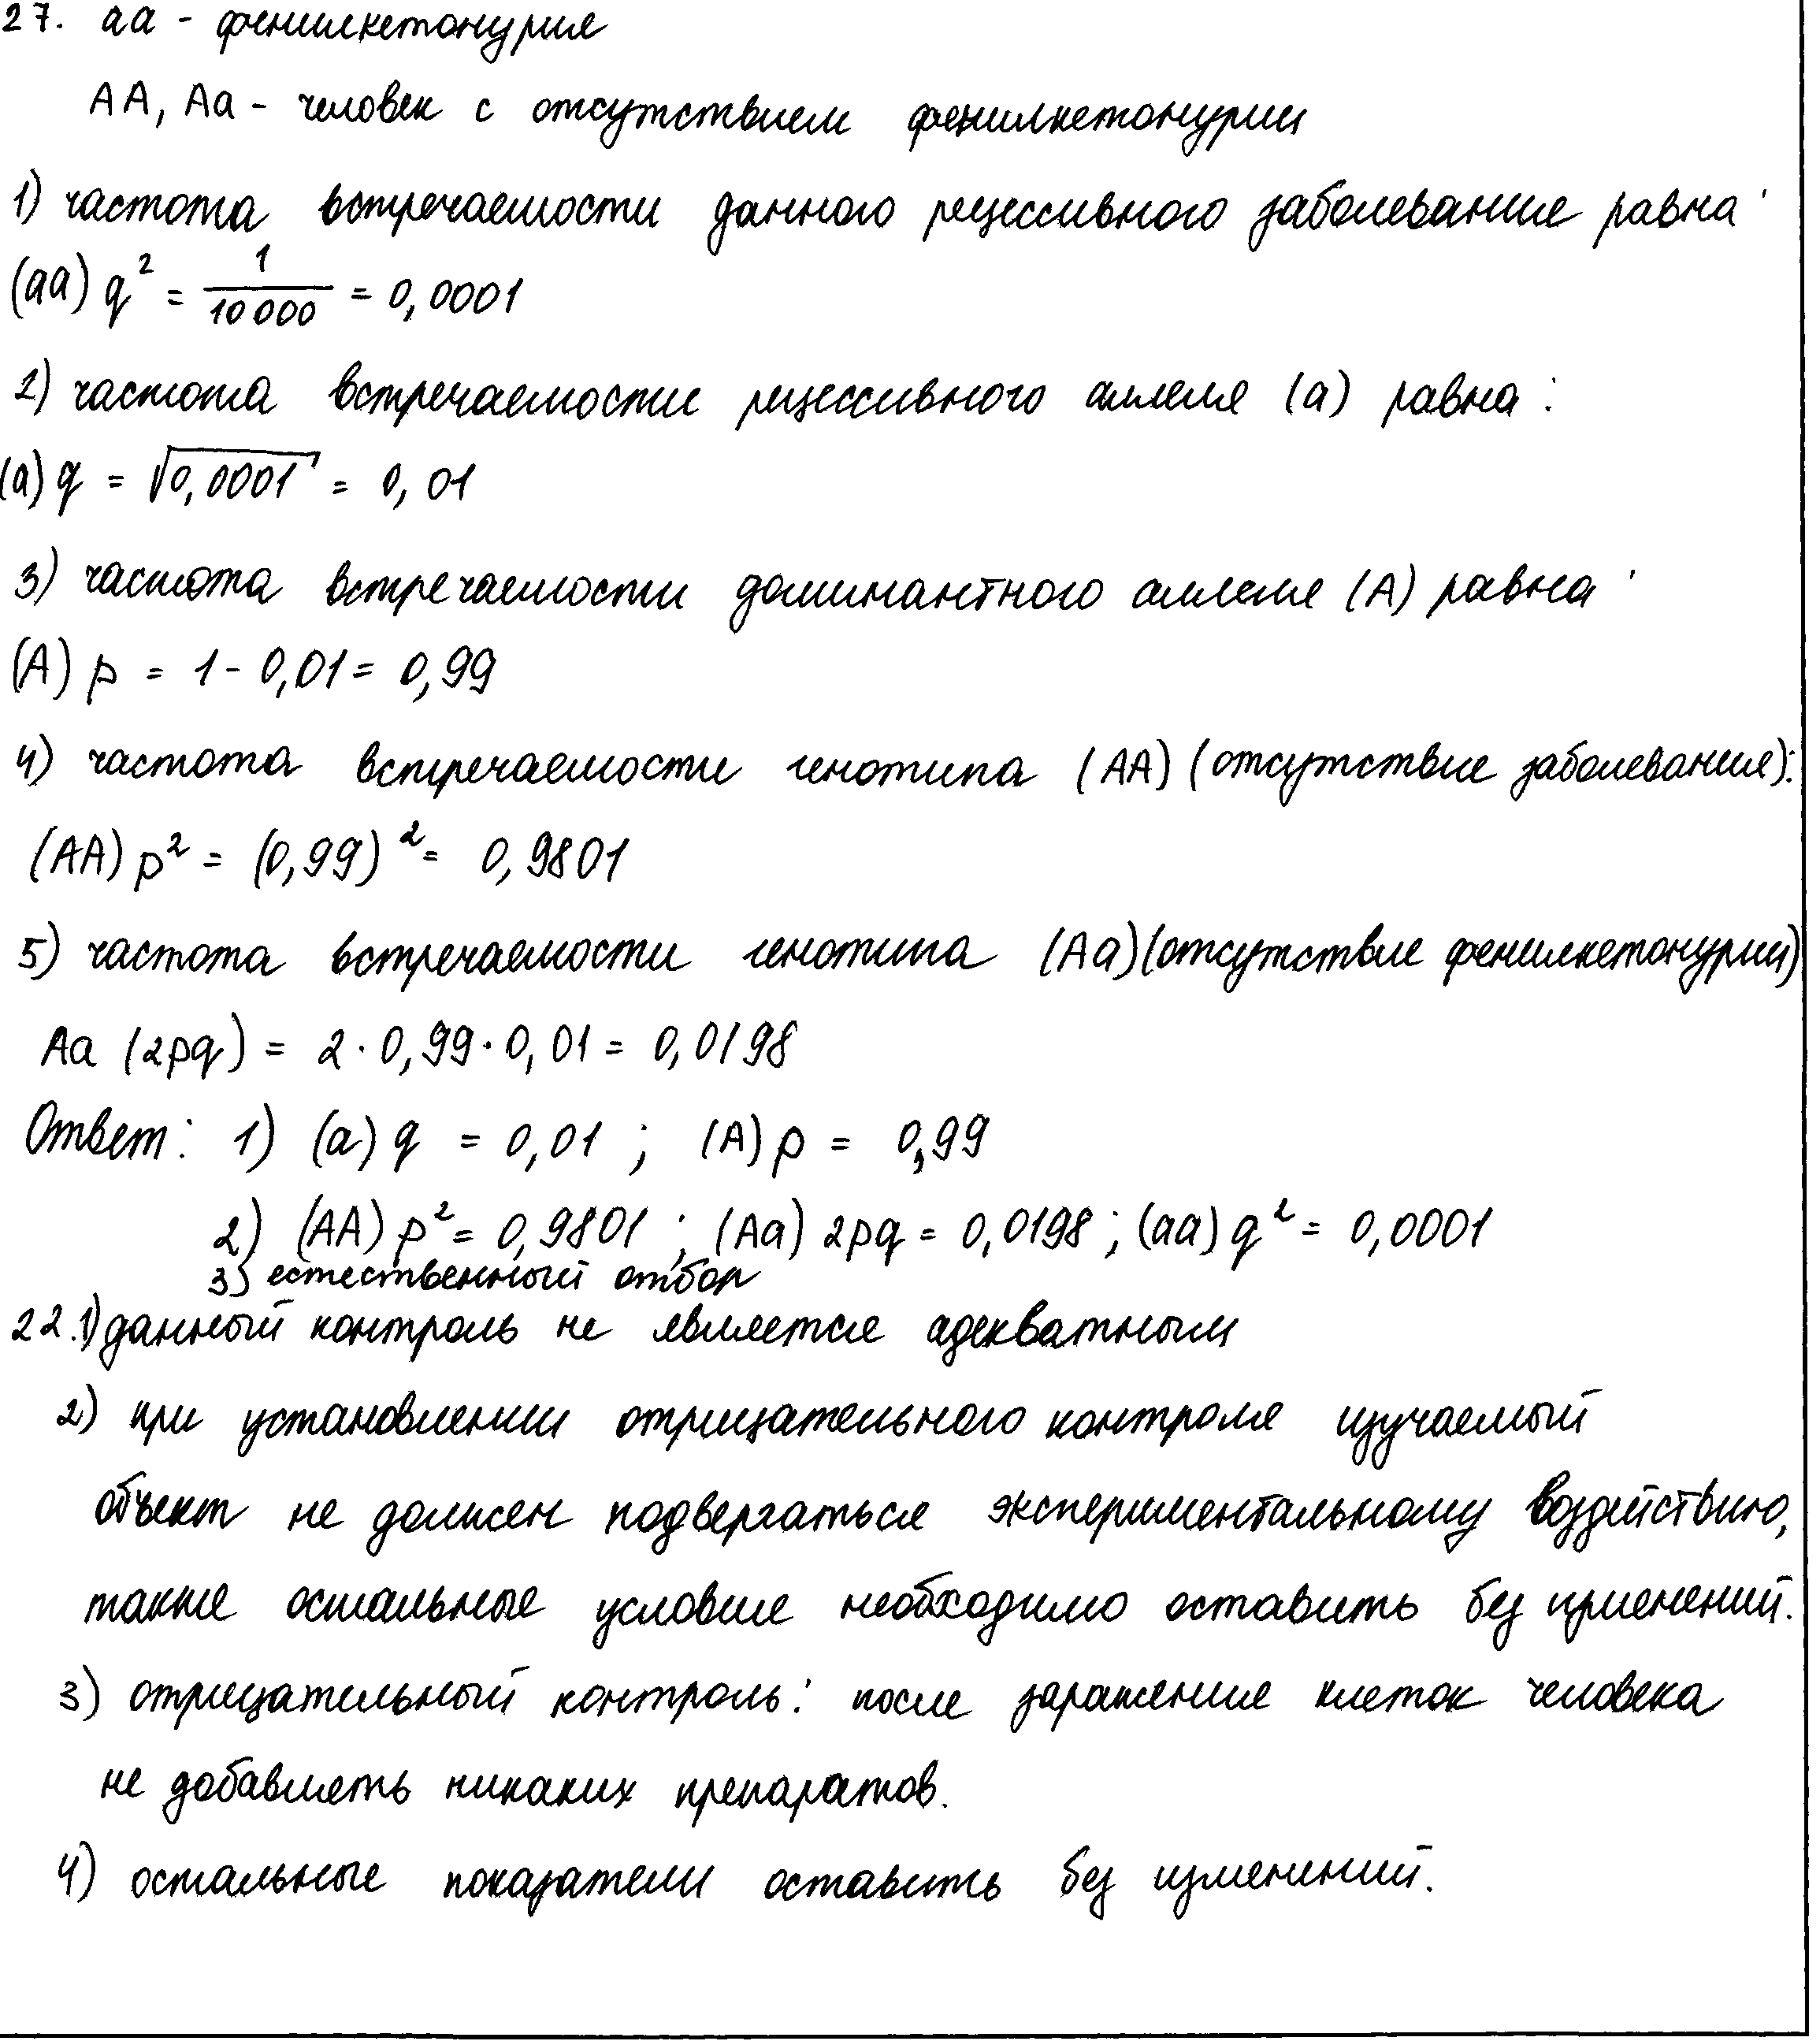 27. аа - фенилкетонурия
АА, Аа - человек с отсутствием фенилкетонурии
1) частота встречаемости данного рецессивного заболевание равна:
(аа) q² = 1/10 000 = 0,0001
2) частота встречаемости рецессивного аллеля (а) равна:
(а) q = √0,0001 = 0,01
3) частота встречаемости доминантного аллеля (А) равна:
(А) p = 1 - 0,01 = 0,99
4) частота встречаемости генотипа (АА) (отсутствие заболевания):
(АА) p² = (0,99)² = 0,9801
5) частота встречаемости генотипа (Аа) (отсутствие фенилкетонурии)
Аа (2pq) = 2 · 0,99 · 0,01 = 0,0198
Ответ: 1) (а) q = 0,01 ; (А) p = 0,99
2) (АА) p² = 0,9801 ; (Аа) 2pq = 0,0198 ; (аа) q² = 0,0001
3) естественный отбор
22. 1) данный контроль не является адекватным
2) при установлении отрицательного контроля изучаемый
объект не должен подвергаться экспериментальному воздействию,
также остальные условие необходимо оставить без
3) отрицательный контроль: после заражение клеток человека
не добавлять никаких препаратов.
4) остальные показатели оставить без изменений.